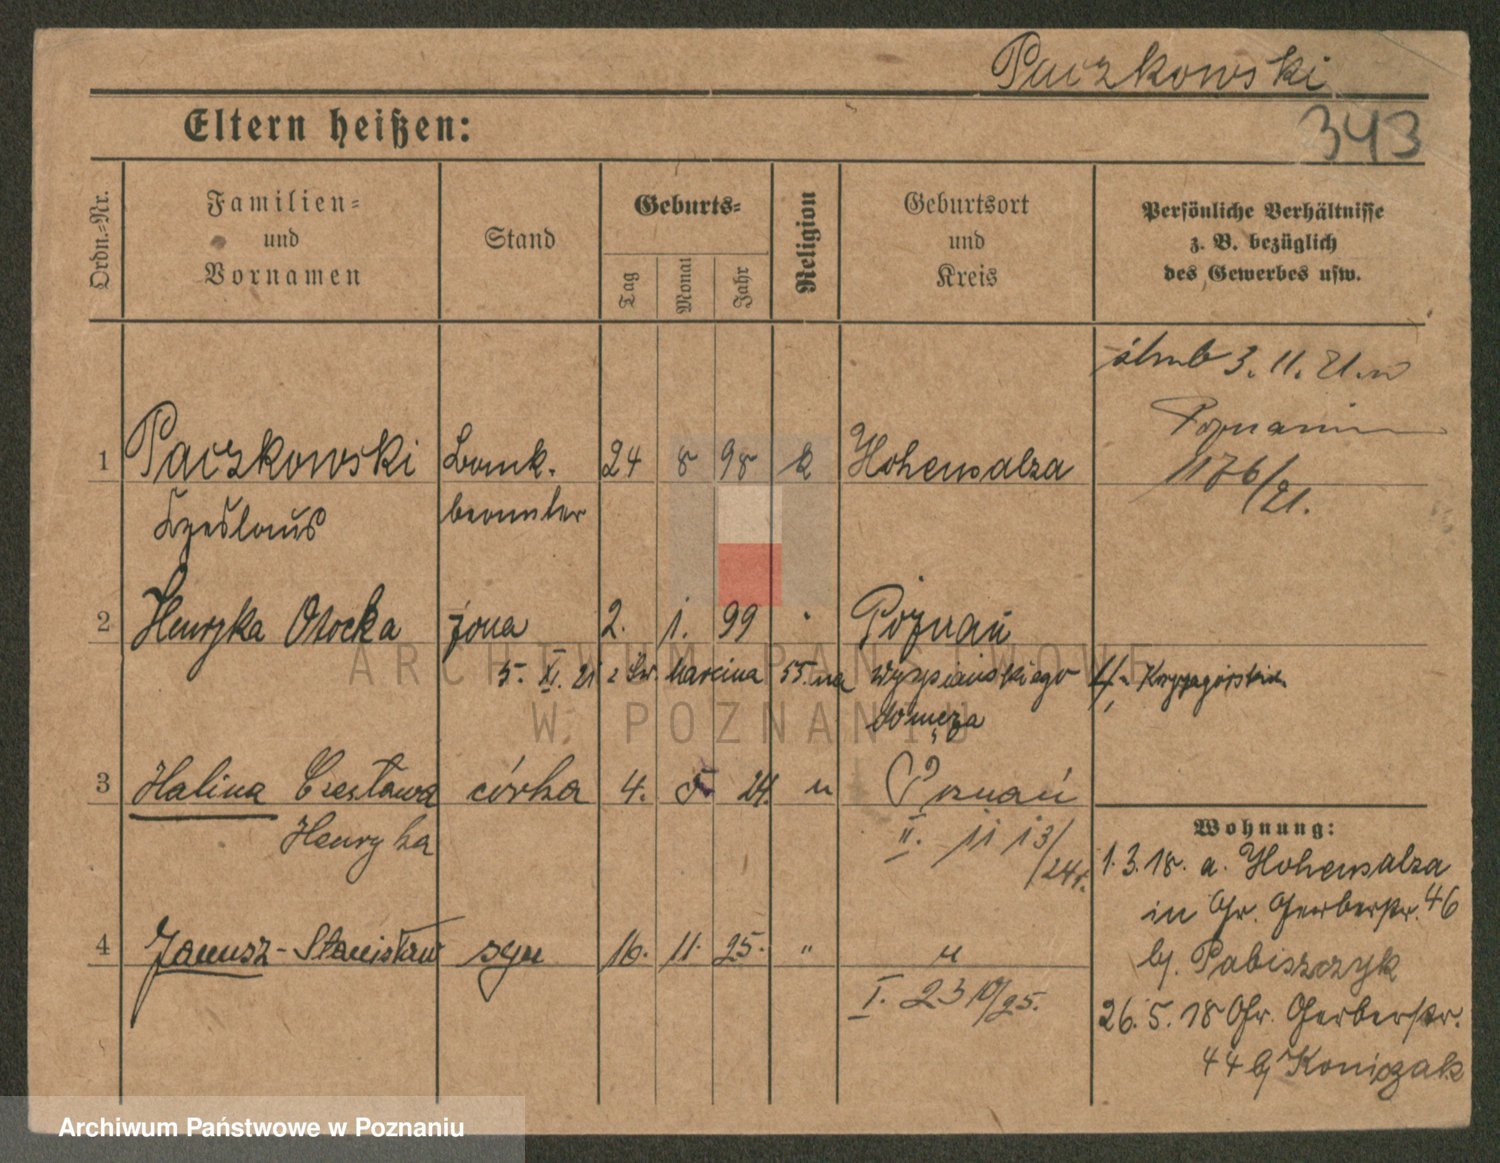 Paczkowski
343
Eltern heißen:
Ordn.-Nr.
Familien-
und
Vornamen
Stand
Geburts-
Tag
Monat
Jahr
Religion
Geburtsort
und
Kreis
Persönliche Verhältnisse
z. B. bezüglich
des Gewerbes usw.
ślub 3. 11. 21. w
Poznaniu
1176/21.
1 Paczkowski Bank- 24 8 98 k Hohensalza
Czeslaus beamter
2 Henryka Otocka żona 2. 1. 99 " Poznań
5. XI. 21 z Św. Marcina 55. na Wyspiańskiego
do męża
3 Halina Czesława córka 4. 5 24. " Poznań
Henryka II. 11 13/24r.
4 Janusz-Stanisław syn 16. 11. 25. " "
I. 23 10/25.
Wohnung:
1. 3. 18. a. Hohensalza
in Gr. Gerberstr. 46
bj. Pabiszczyk
26. 5. 18 Gr. Gerberstr.
44 bj Koniczak
ARCHIWUM PAŃSTWOWE
W POZNANIU
Archiwum Państwowe w Poznaniu